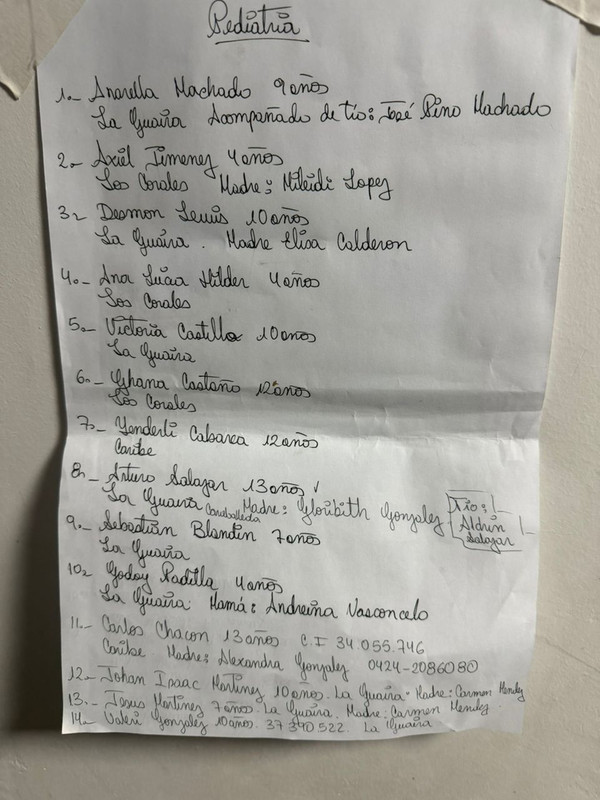 Pediatria
1.- Anarella Machado 9 años
La Guaira Acompañado de tio: José Pino Machado
2.- Axiel Jimenez 4 años
Los Corales Madre: Mileidi Lopez
3.- Desmon Lewis 10 años
La Guaira. Madre Elisa Calderon
4.- Ana Lucia Hilder 4 años
Los Corales
5.- Victoria Castillo 10 años
La Guaira
6.- Ghana Castaño 12 años
Los Corales
7.- Yenderli Cabarca 12 años
Caribe
8.- Arturo Salazar 13 años ✓
La Guaira Caraballeda Madre: Gloribith Gonzalez
Tio: Aldrin Salazar
9.- Sebastián Blandin 7 años
La Guaira
10.- Godoy Padilla 4 años
La Guaira. Mamá: Andreina Vasconcelo
11.- Carlos Chacon 13 años C.I 34.055.746
Caribe Madre: Alexandra Gonzalez 0424-2086080
12.- Johan Isaac Martinez 10 años. La Guaira. Madre: Carmen Mendez
13.- Jesus Martinez 7 años. La Guaira. Madre: Carmen Mendez.
14.- Valeri Gonzalez 10 años. 37 340.522. La Guaira